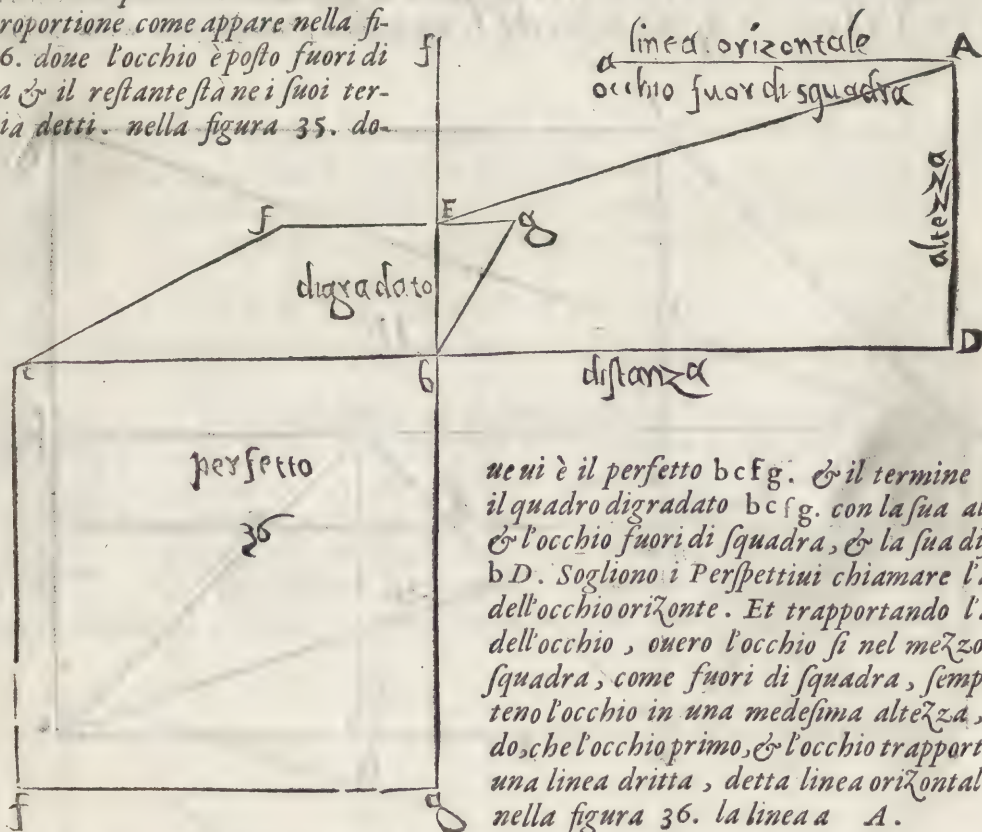 roportione come appare nella fi-
6. doue l'occhio è posto fuori di
a & il restante stà ne i suoi ter-
ia detti. nella figura 35. do-
f
linea orizontale
a
A
occhio fuor di squadra
altezza
f
E
g
digradato
c
b
distanza
D
perfetto
36
f
g
ue ui è il perfetto bcfg. & il termine
il quadro digradato bcfg. con la sua al
& l'occhio fuori di squadra, & la sua di
bD. Sogliono i Perspettiui chiamare l'
dell'occhio orizonte. Et trapportando l'
dell'occhio, ouero l'occhio si nel mezzo
squadra, come fuori di squadra, semp
teno l'occhio in una medesima altezza,
do, che l'occhio primo, & l'occhio trapport
una linea dritta, detta linea orizontal
nella figura 36. la linea a A.